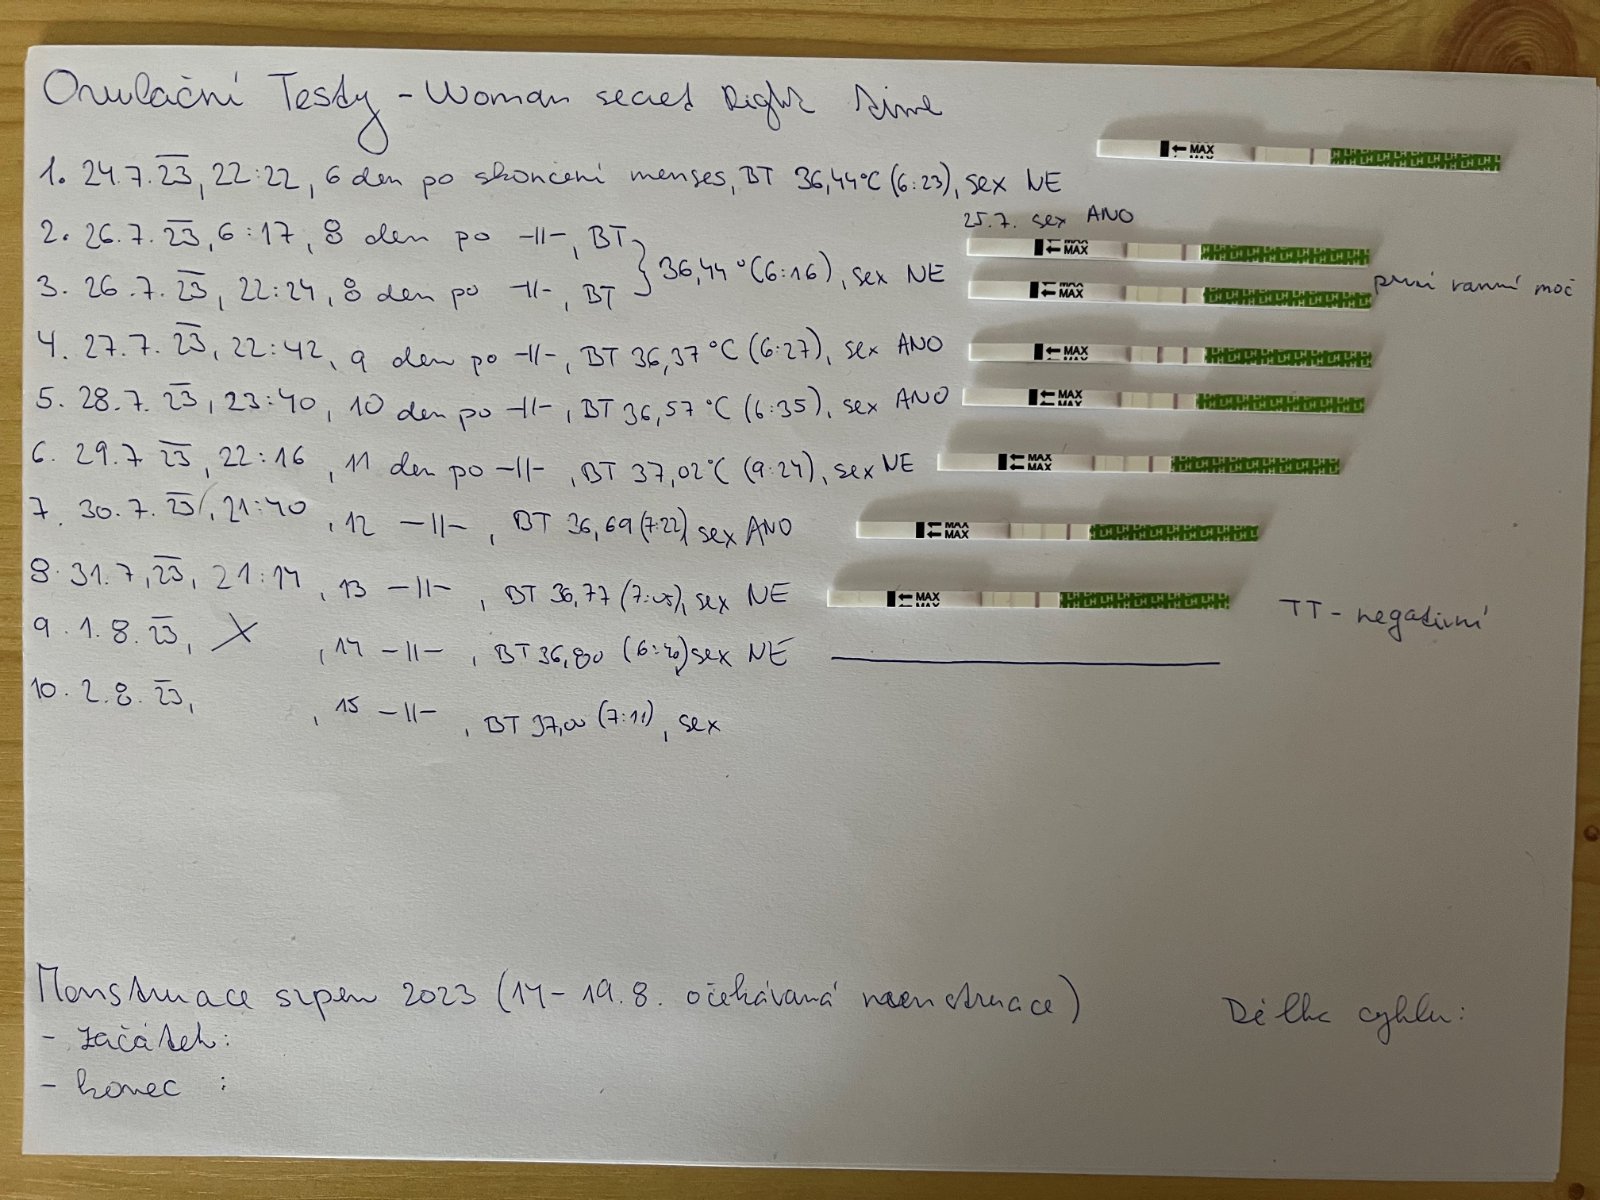 Ovulační Testy - Woman secret Right time
← MAX
LH LH LH LH LH LH LH
1. 24.7.23, 22:22, 6 den po skončení menses, BT 36,44°C (6:23), sex NE
25.7. sex ANO
2. 26.7.23, 6:17, 8 den po -||-, BT
← MAX
} 36,44° (6:16), sex NE
první ranní moč
3. 26.7.23, 22:24, 8 den po -||-, BT
← MAX
4. 27.7.23, 22:42, 9 den po -||-, BT 36,37°C (6:27), sex ANO
← MAX
5. 28.7.23, 23:40, 10 den po -||-, BT 36,57°C (6:35), sex ANO
← MAX
6. 29.7 23, 22:16, 11 den po -||-, BT 37,02°C (9:24), sex NE
← MAX
7. 30.7.23, 21:40, 12 -||-, BT 36,69 (7:22) sex ANO
← MAX
8. 31.7.23, 21:14, 13 -||-, BT 36,77 (7:05), sex NE
← MAX
TT - negativní
9. 1.8.23, X, 14 -||-, BT 36,80 sex NE
10. 2.8.23, , 15 -||-, BT 37,00 (7:11), sex
Menstruace srpen 2023 (14-19.8. očekávaná menstruace)
Délka cyklu:
- začátek:
- konec :